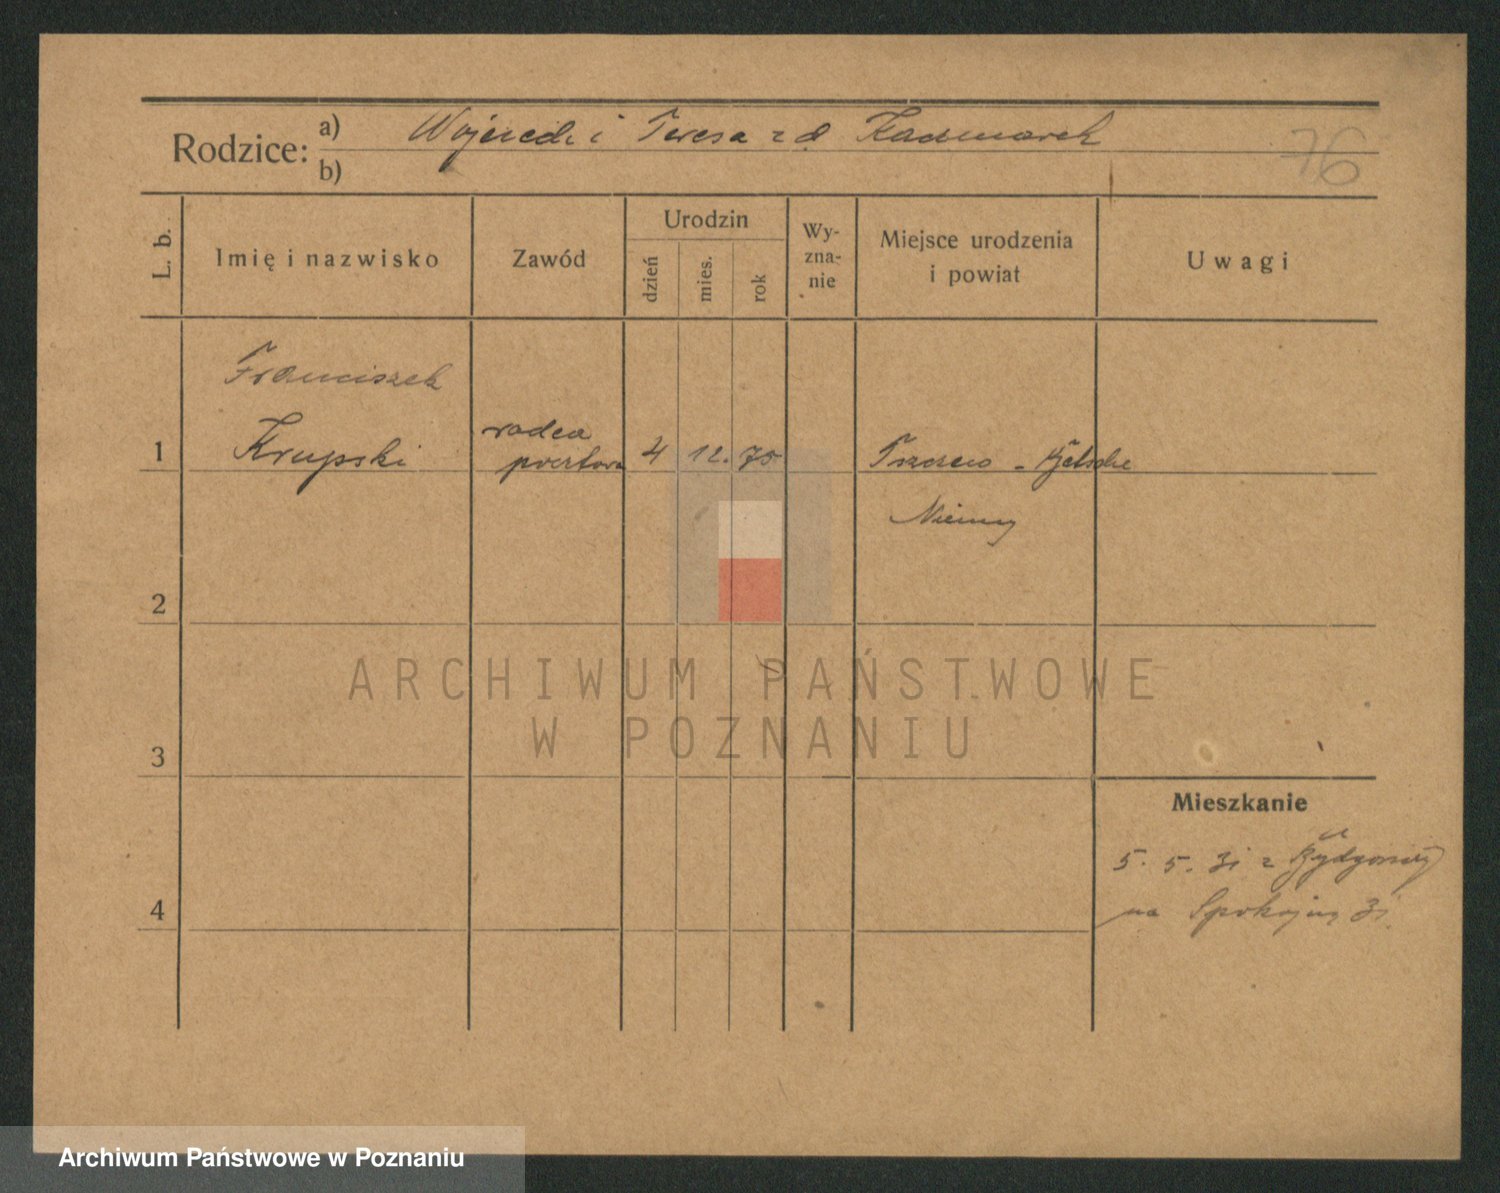 Rodzice:
a) Wojciech i Teresa z d Kaczmarek
b)
76
L. b.
Imię i nazwisko
Zawód
Urodzin
dzień
mies.
rok
Wy-
zna-
nie
Miejsce urodzenia
i powiat
Uwagi
Franciszek
1 Krupski radca pocztowy 4 12. 75 Tszczew -
Niemcy
2
3
4
Mieszkanie
5. 5. 31 z Bydgoszczy
na Spokojną 31.
ARCHIWUM PAŃSTWOWE
W POZNANIU
Archiwum Państwowe w Poznaniu